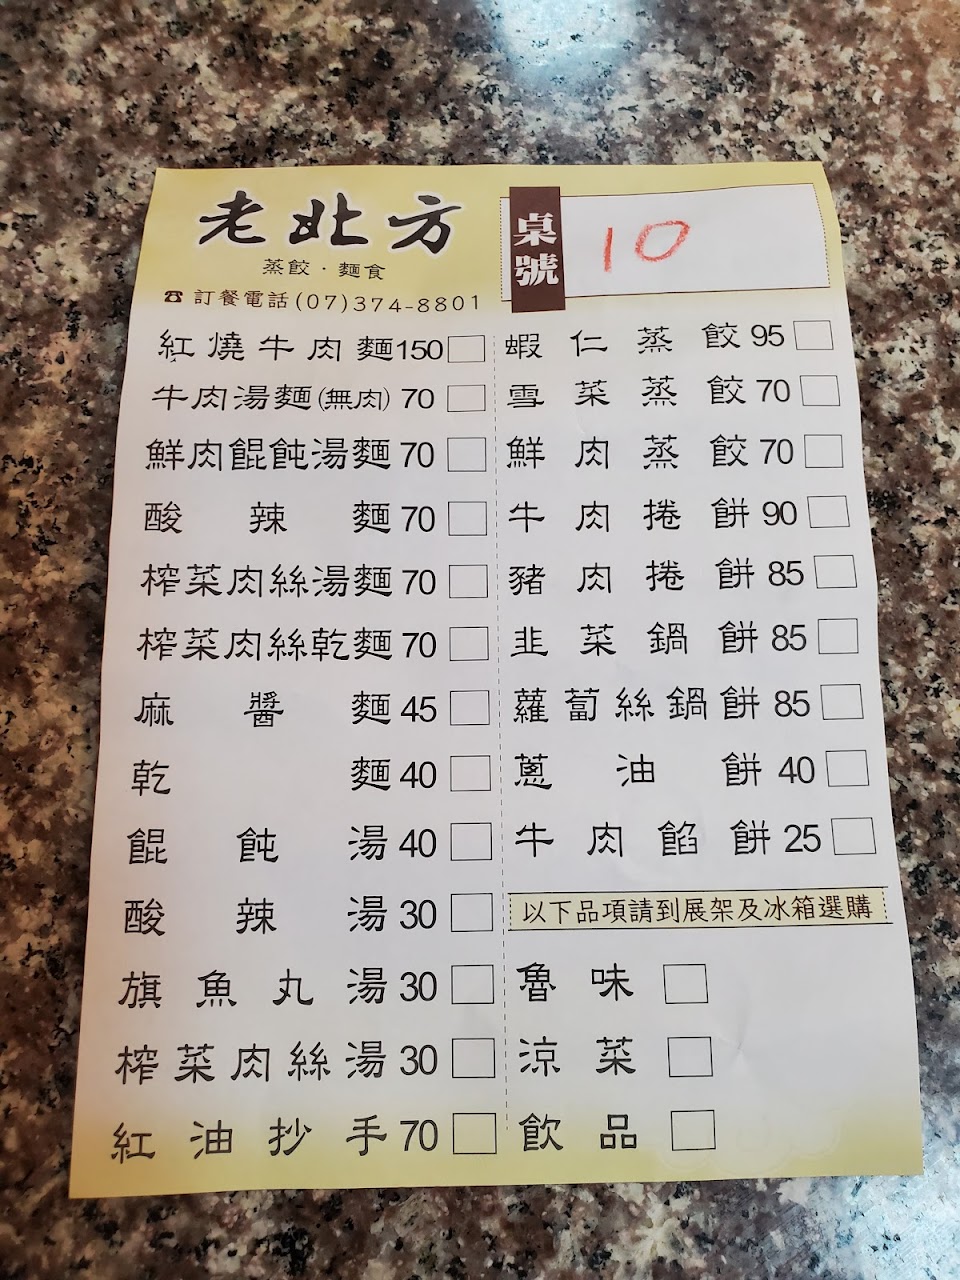 老北方
蒸餃·麵食
☎ 訂餐電話(07)374-8801
桌號
10
紅燒牛肉麵150
牛肉湯麵(無肉) 70
鮮肉餛飩湯麵 70
酸辣麵 70
榨菜肉絲湯麵 70
榨菜肉絲乾麵 70
麻醬麵 45
乾麵 40
餛飩湯 40
酸辣湯 30
旗魚丸湯 30
榨菜肉絲湯 30
紅油抄手 70
蝦仁蒸餃 95
雪菜蒸餃 70
鮮肉蒸餃 70
牛肉捲餅 90
豬肉捲餅 85
韭菜鍋餅 85
蘿蔔絲鍋餅 85
蔥油餅 40
牛肉餡餅 25
以下品項請到展架及冰箱選購
魯味
涼菜
飲品